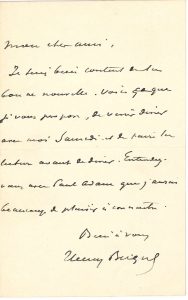 Mon cher ami,
Je suis bien content de la
bonne nouvelle. Voici ce que
je vous propose, de venir dîner
avec moi Samedi et de faire la
lecture avant de dîner. Entendez-
vous avec Paul Adam que j'aurai
beaucoup de plaisir à connaître.
Bien à vous
Henry